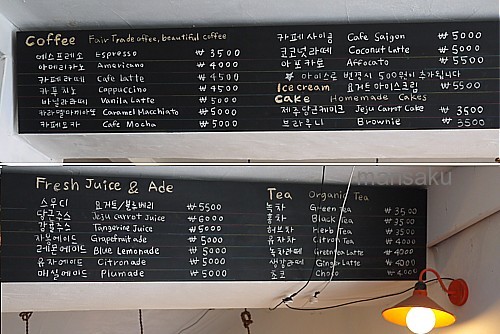 Coffee Fair Trade offee, beautiful coffee
에스프레소 Espresso ₩ 3500
아메리카노 Americano ₩ 4000
카페라떼 Cafe Latte ₩ 4500
카푸치노 Cappuccino ₩ 4500
바닐라라떼 Vanila Latte ₩ 5000
카라멜마끼아또 Caramel Macchiato ₩ 5000
카페모카 Cafe Mocha ₩ 5000
카페사이공 Cafe Saigon ₩ 5000
코코넛라떼 Coconut Latte ₩ 5000
아포카토 Affocato ₩ 5500
★ 아이스로 변경시 500원이 추가됩니다
Ice cream 요거트아이스크림 ₩ 5500
Cake Homemade Cakes
제주당근케이크 Jeju Carot Cake ₩ 3500
브라우니 Brownie ₩ 3500
Fresh Juice & Ade
스무디 요거트/블루베리 ₩ 5500
당근주스 Jeju carrot Juice ₩ 6000
감귤주스 Tangerine Juice ₩ 5000
자몽에이드 Grapefruit ade ₩ 5000
레몬에이드 Blue Lemonade ₩ 5000
유자에이드 Citronade ₩ 5000
매실에이드 Plumade ₩ 5000
Tea Organic Tea
녹차 Green Tea ₩ 3500
홍차 Black Tea ₩ 3500
허브차 Herb Tea ₩ 3500
유자차 Citron Tea ₩ 4000
녹차라떼 Green tea Latte ₩ 4000
생강라떼 Ginger Latte ₩ 4000
초코 Choco ₩ 4000
mansaku